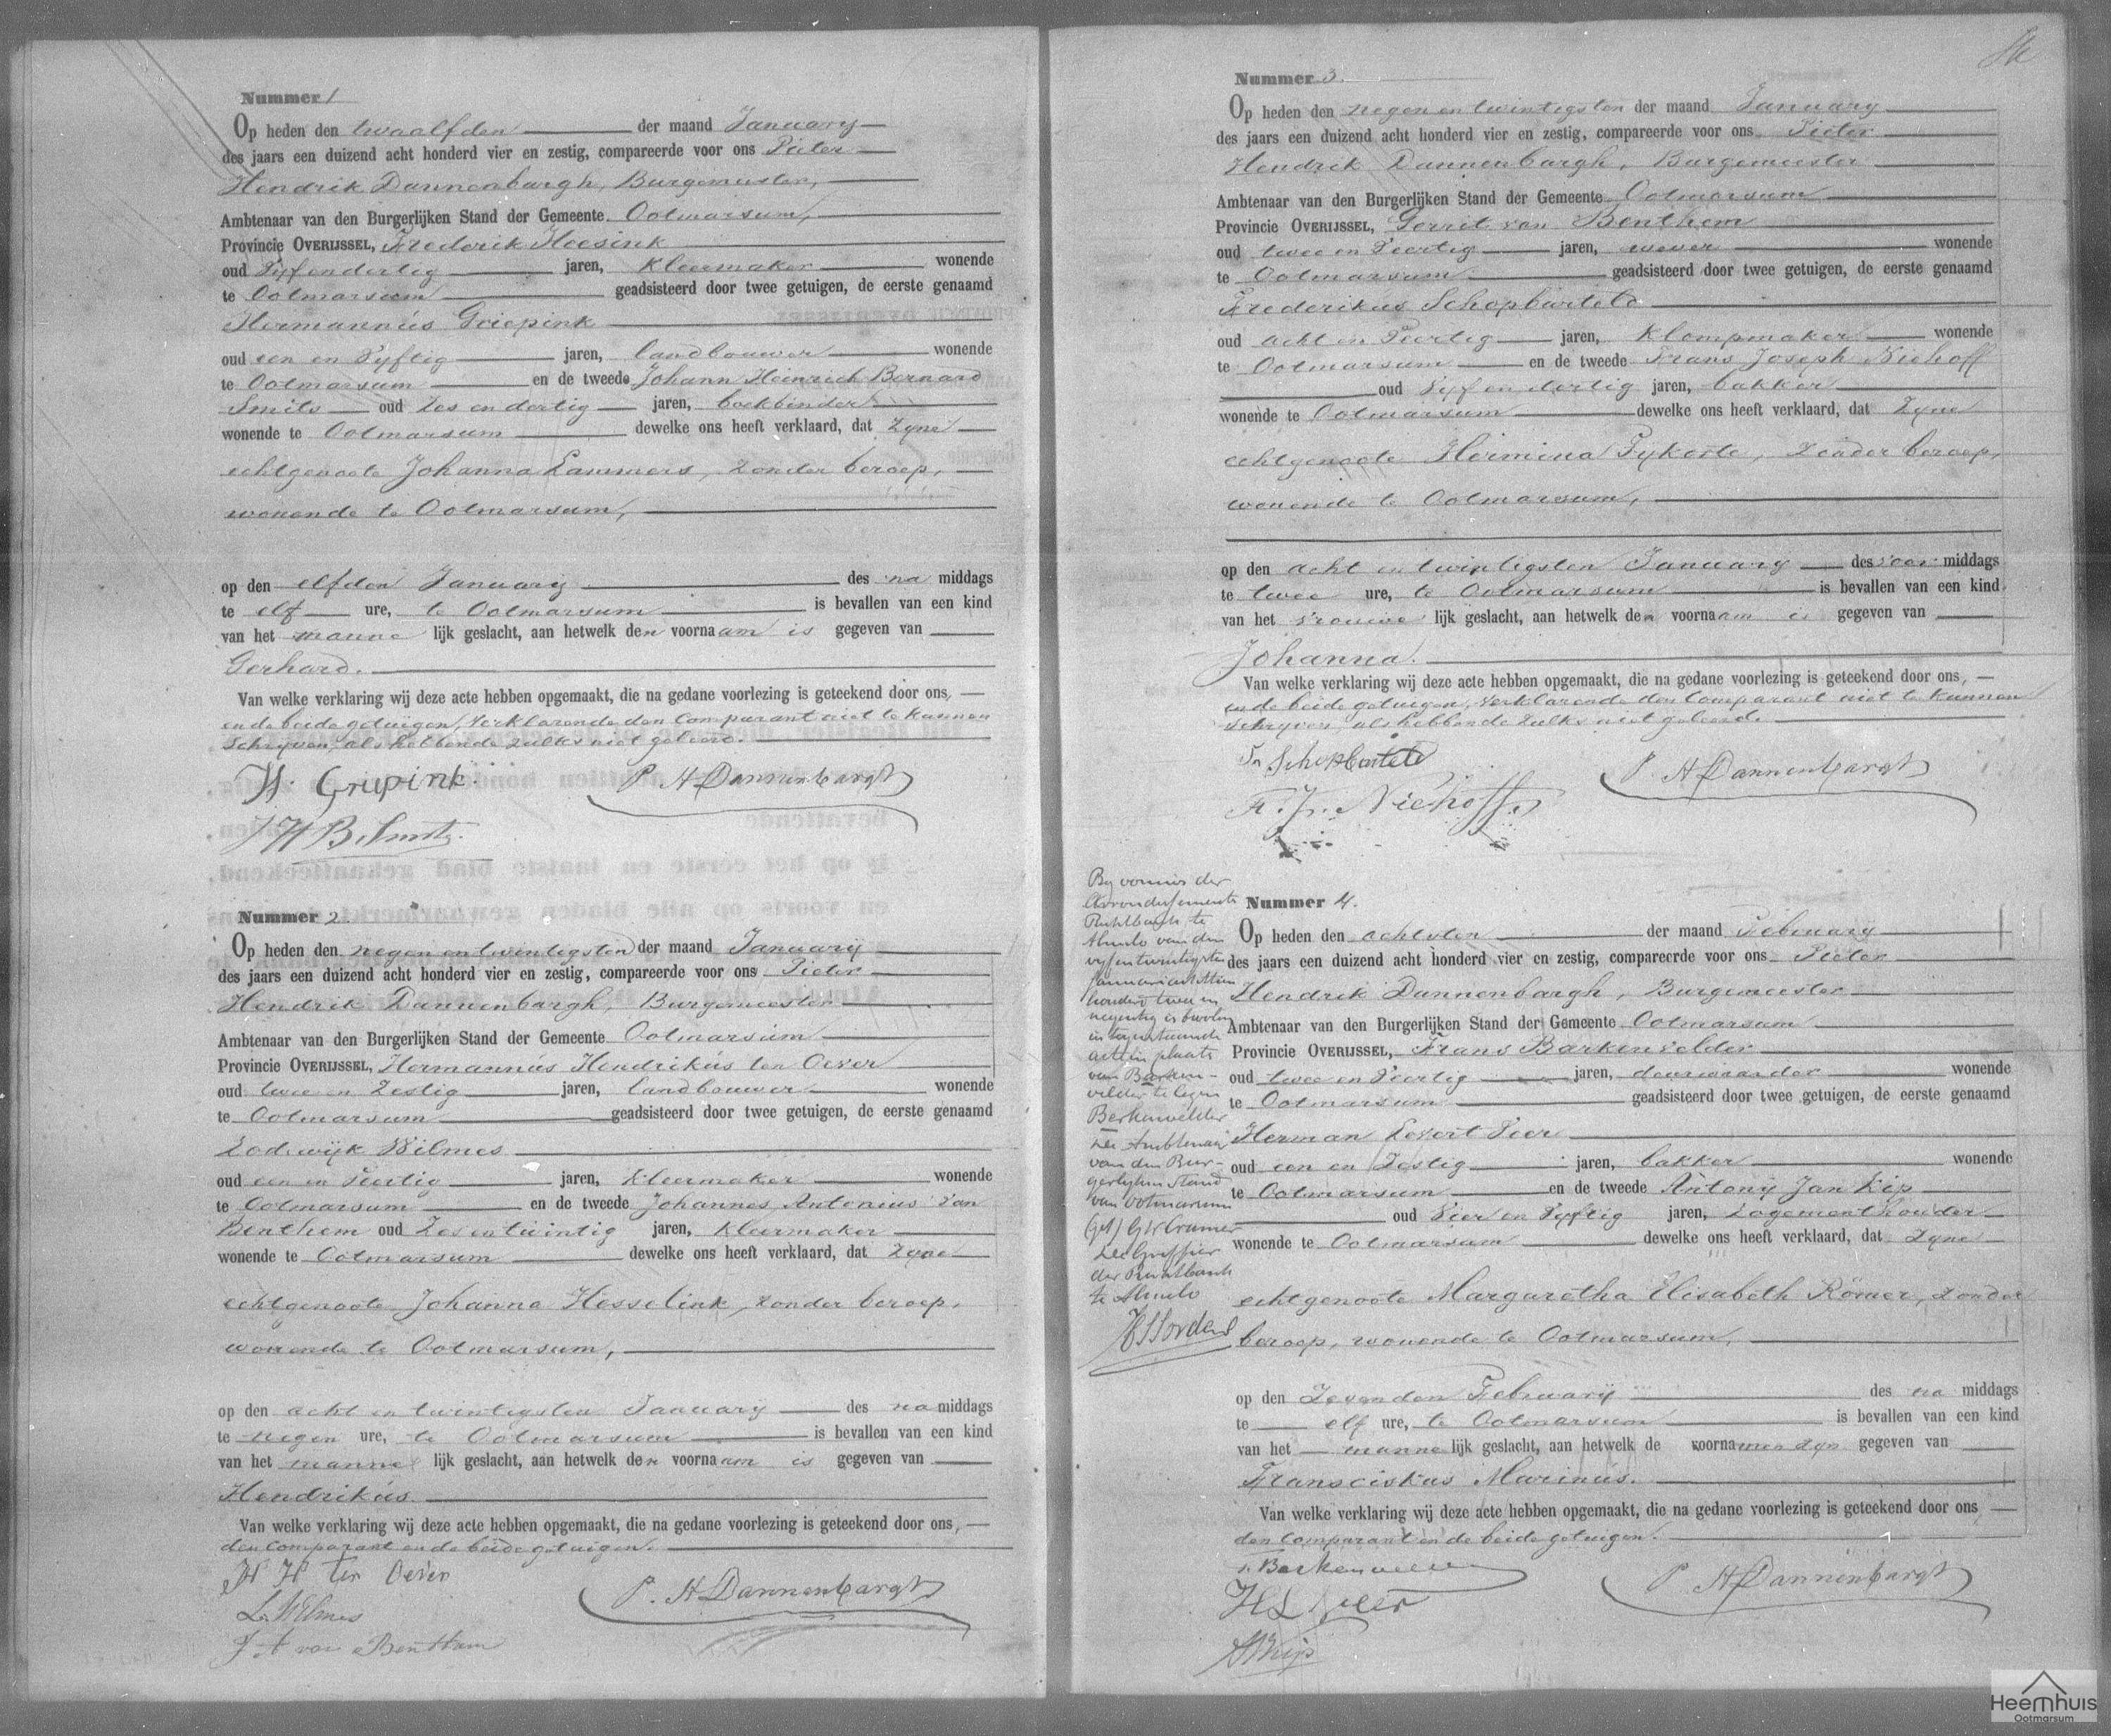 Nummer 1
Op heden den twaalfden der maand January
des jaars een duizend acht honderd vier en zestig, compareerde voor ons Pieter
Hendrik Dannenbargh, Burgemeester,
Ambtenaar van den Burgerlijken Stand der Gemeente Ootmarsum,
Provincie OVERIJSSEL, Frederik Heesink
oud Vyfendertig jaren, Kleermaker wonende
te Ootmarsum geadsisteerd door twee getuigen, de eerste genaamd
Hermannús Griepink
oud een en Vyftig jaren, landbouwer wonende
te Ootmarsum en de tweede Johann Heinrich Bernard
Smits oud Zes en dertig jaren, boekbinder
wonende te Ootmarsum dewelke ons heeft verklaard, dat Zyne
echtgenoote Johanna Lammers, zonder beroep,
wonende te Ootmarsum,
op den elfden January des na middags
te elf ure, te Ootmarsum is bevallen van een kind
van het manne lijk geslacht, aan hetwelk den voornaam is gegeven van
Gerhard.
Van welke verklaring wij deze acte hebben opgemaakt, die na gedane voorlezing is geteekend door ons,
en de beide getuigen, Verklarende den Comparant niet te kunnen
Schryven, als hebbende zulks niet geleerd.
H. Griepink P. H Dannenbargh
J H B Smits
Nummer 2.
Op heden den negen en twintigsten der maand January
des jaars een duizend acht honderd vier en zestig, compareerde voor ons Pieter
Hendrik Dannenbargh, Burgemeester
Ambtenaar van den Burgerlijken Stand der Gemeente Ootmarsum
Provincie OVERIJSSEL, Hermannús Hendrikús ten Oever
oud twee en Zestig jaren, landbouwer wonende
te Ootmarsum geadsisteerd door twee getuigen, de eerste genaamd
Lodewijk Wilmes
oud een en Veertig jaren, Kleermaker wonende
te Ootmarsum en de tweede Johannes Antonius van
Benthem oud Zes en twintig jaren, Kleermaker
wonende te Ootmarsum dewelke ons heeft verklaard, dat Zyne
echtgenoote Johanna Hesselink, zonder beroep,
wonende te Ootmarsum,
op den acht en twintigsten January des na middags
te negen ure, te Ootmarsum is bevallen van een kind
van het manne lijk geslacht, aan hetwelk den voornaam is gegeven van
Hendrikús.
Van welke verklaring wij deze acte hebben opgemaakt, die na gedane voorlezing is geteekend door ons,
den Comparant en de beide getuigen.
H H ten Oever P. H Dannenbargh
L. Wilmes
J A van Benthem
Nummer 3.
Op heden den negen en twintigsten der maand January
des jaars een duizend acht honderd vier en zestig, compareerde voor ons Pieter
Hendrik Dannenbargh, Burgemeester
Ambtenaar van den Burgerlijken Stand der Gemeente Ootmarsum
Provincie OVERIJSSEL, Gerrit van Benthem
oud twee en Veertig jaren, wever wonende
te Ootmarsum geadsisteerd door twee getuigen, de eerste genaamd
Frederikus Schopbarteld
oud acht en Veertig jaren, Klompmaker wonende
te Ootmarsum en de tweede Frans Joseph Niehoff
oud Vyf en dertig jaren, bakker
wonende te Ootmarsum dewelke ons heeft verklaard, dat Zyne
echtgenoote Hermina Pykoste, Zonder beroep,
wonende te Ootmarsum,
op den acht en twintigsten January des voor middags
te twee ure, te Ootmarsum is bevallen van een kind
van het vrouwe lijk geslacht, aan hetwelk den voornaam is gegeven van
Johanna.
Van welke verklaring wij deze acte hebben opgemaakt, die na gedane voorlezing is geteekend door ons,
en de beide getuigen, Verklarende den Comparant niet te kunnen
Schryven, als hebbende zulks niet geleerd
Fr Schopbarteld P. H Dannenbargh
F. J. Niehoff
By vonnis der
Arrondissements
Rechtbank te
Almelo van den
vyfentwintigsten
Januari achttien
honderd twee en
negentig is bevolen
in tegenstaande
acte in plaats
van Barken-
velder te lezen
Berkenvelder
De Ambtenaar
van den Bur-
gerlyken Stand
van Ootmarsum
(get) G W Cramer
De Griffier
der Rechtbank
te Almelo
Nummer 4.
Op heden den achtsten der maand February
des jaars een duizend acht honderd vier en zestig, compareerde voor ons Pieter
Hendrik Dannenbargh, Burgemeester
Ambtenaar van den Burgerlijken Stand der Gemeente Ootmarsum
Provincie OVERIJSSEL, Frans Barkenvelder
oud twee en Veertig jaren, deurwaarder wonende
te Ootmarsum geadsisteerd door twee getuigen, de eerste genaamd
Herman Levert Veer
oud een en Zestig jaren, bakker wonende
te Ootmarsum en de tweede Antony Jan Kip
oud Vier en Vyftig jaren, Logementhouder
wonende te Ootmarsum dewelke ons heeft verklaard, dat Zyne
echtgenoote Margaretha Elisabeth Römer, zonder
beroep, wonende te Ootmarsum,
op den Zevenden February des na middags
te elf ure, te Ootmarsum is bevallen van een kind
van het manne lijk geslacht, aan hetwelk de voornamen zyn gegeven van
Fransciskus Marinus.
Van welke verklaring wij deze acte hebben opgemaakt, die na gedane voorlezing is geteekend door ons
den Comparant en de beide getuigen.
P. H Dannenbargh
H L Veer
A J Kip
Heemhuis
Ootmarsum